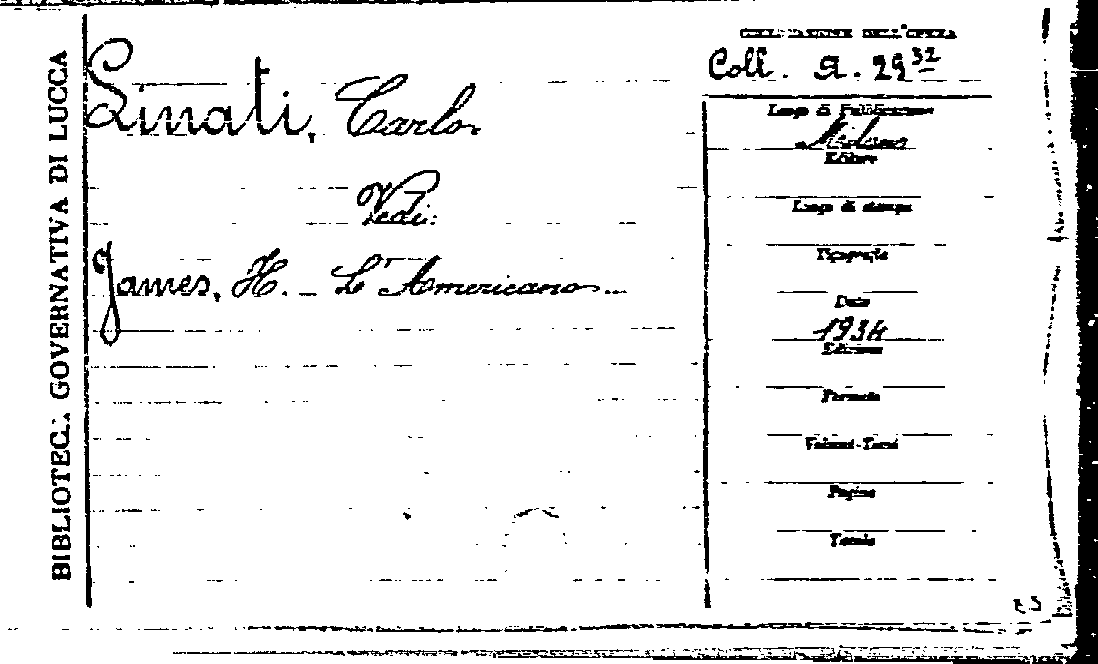 BIBLIOTECA GOVERNATIVA DI LUCCA
Linati, Carlo.
Vedi:
James, H. - L'Americano...
COLLOCAZIONE DELL'OPERA
Coll. A. 29 32
Luogo di Pubblicazione
Milano
Editore
Luogo di stampa
Tipografia
Data
1934
Edizione
Formato
Volumi-Tomi
Pagine
Tavole